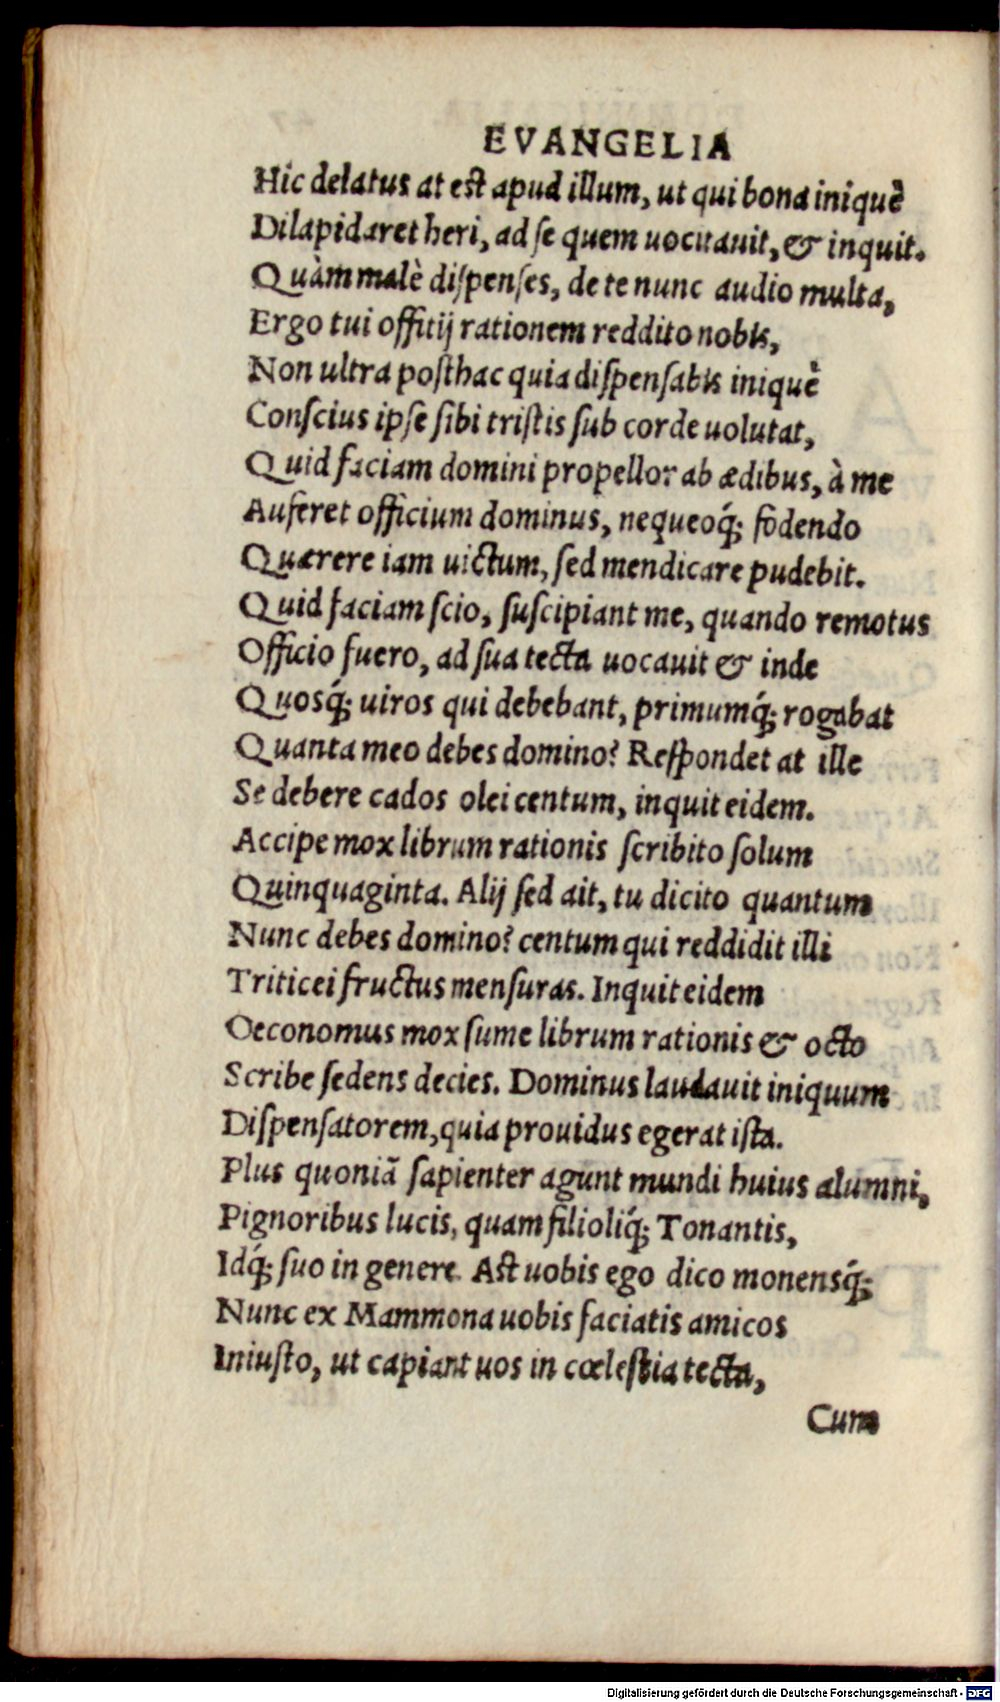 EVANGELIA
Hic delatus at est apud illum, ut qui bona iniquè
Dilapidaret heri, ad se quem uocitauit, & inquit.
Quàm malè dispenses, de te nunc audio multa,
Ergo tui offitij rationem reddito nobis,
Non ultra posthac quia dispensabis iniquè
Conscius ipse sibi tristis sub corde uolutat,
Quid faciam domini propellor ab ædibus, à me
Auferet officium dominus, nequeoq́; fodendo
Quærere iam uictum, sed mendicare pudebit.
Quid faciam scio, suscipiant me, quando remotus
Officio fuero, ad sua tecta uocauit & inde
Quosq́; uiros qui debebant, primumq́; rogabat
Quanta meo debes domino? Respondet at ille
Se debere cados olei centum, inquit eidem.
Accipe mox librum rationis scribito solum
Quinquaginta. Alij sed ait, tu dicito quantum
Nunc debes domino? centum qui reddidit illi
Triticei fructus mensuras. Inquit eidem
Oeconomus mox sume librum rationis & octo
Scribe sedens decies. Dominus laudauit iniquum
Dispensatorem, quia prouidus egerat ista.
Plus quoniã sapienter agunt mundi huius alumni,
Pignoribus lucis, quam filioliq́; Tonantis,
Idq́; suo in genere. Ast uobis ego dico monensq́;
Nunc ex Mammona uobis faciatis amicos
Iniusto, ut capiant uos in cœlestia tecta,
Cum
Digitalisierung gefördert durch die Deutsche Forschungsgemeinschaft - DFG